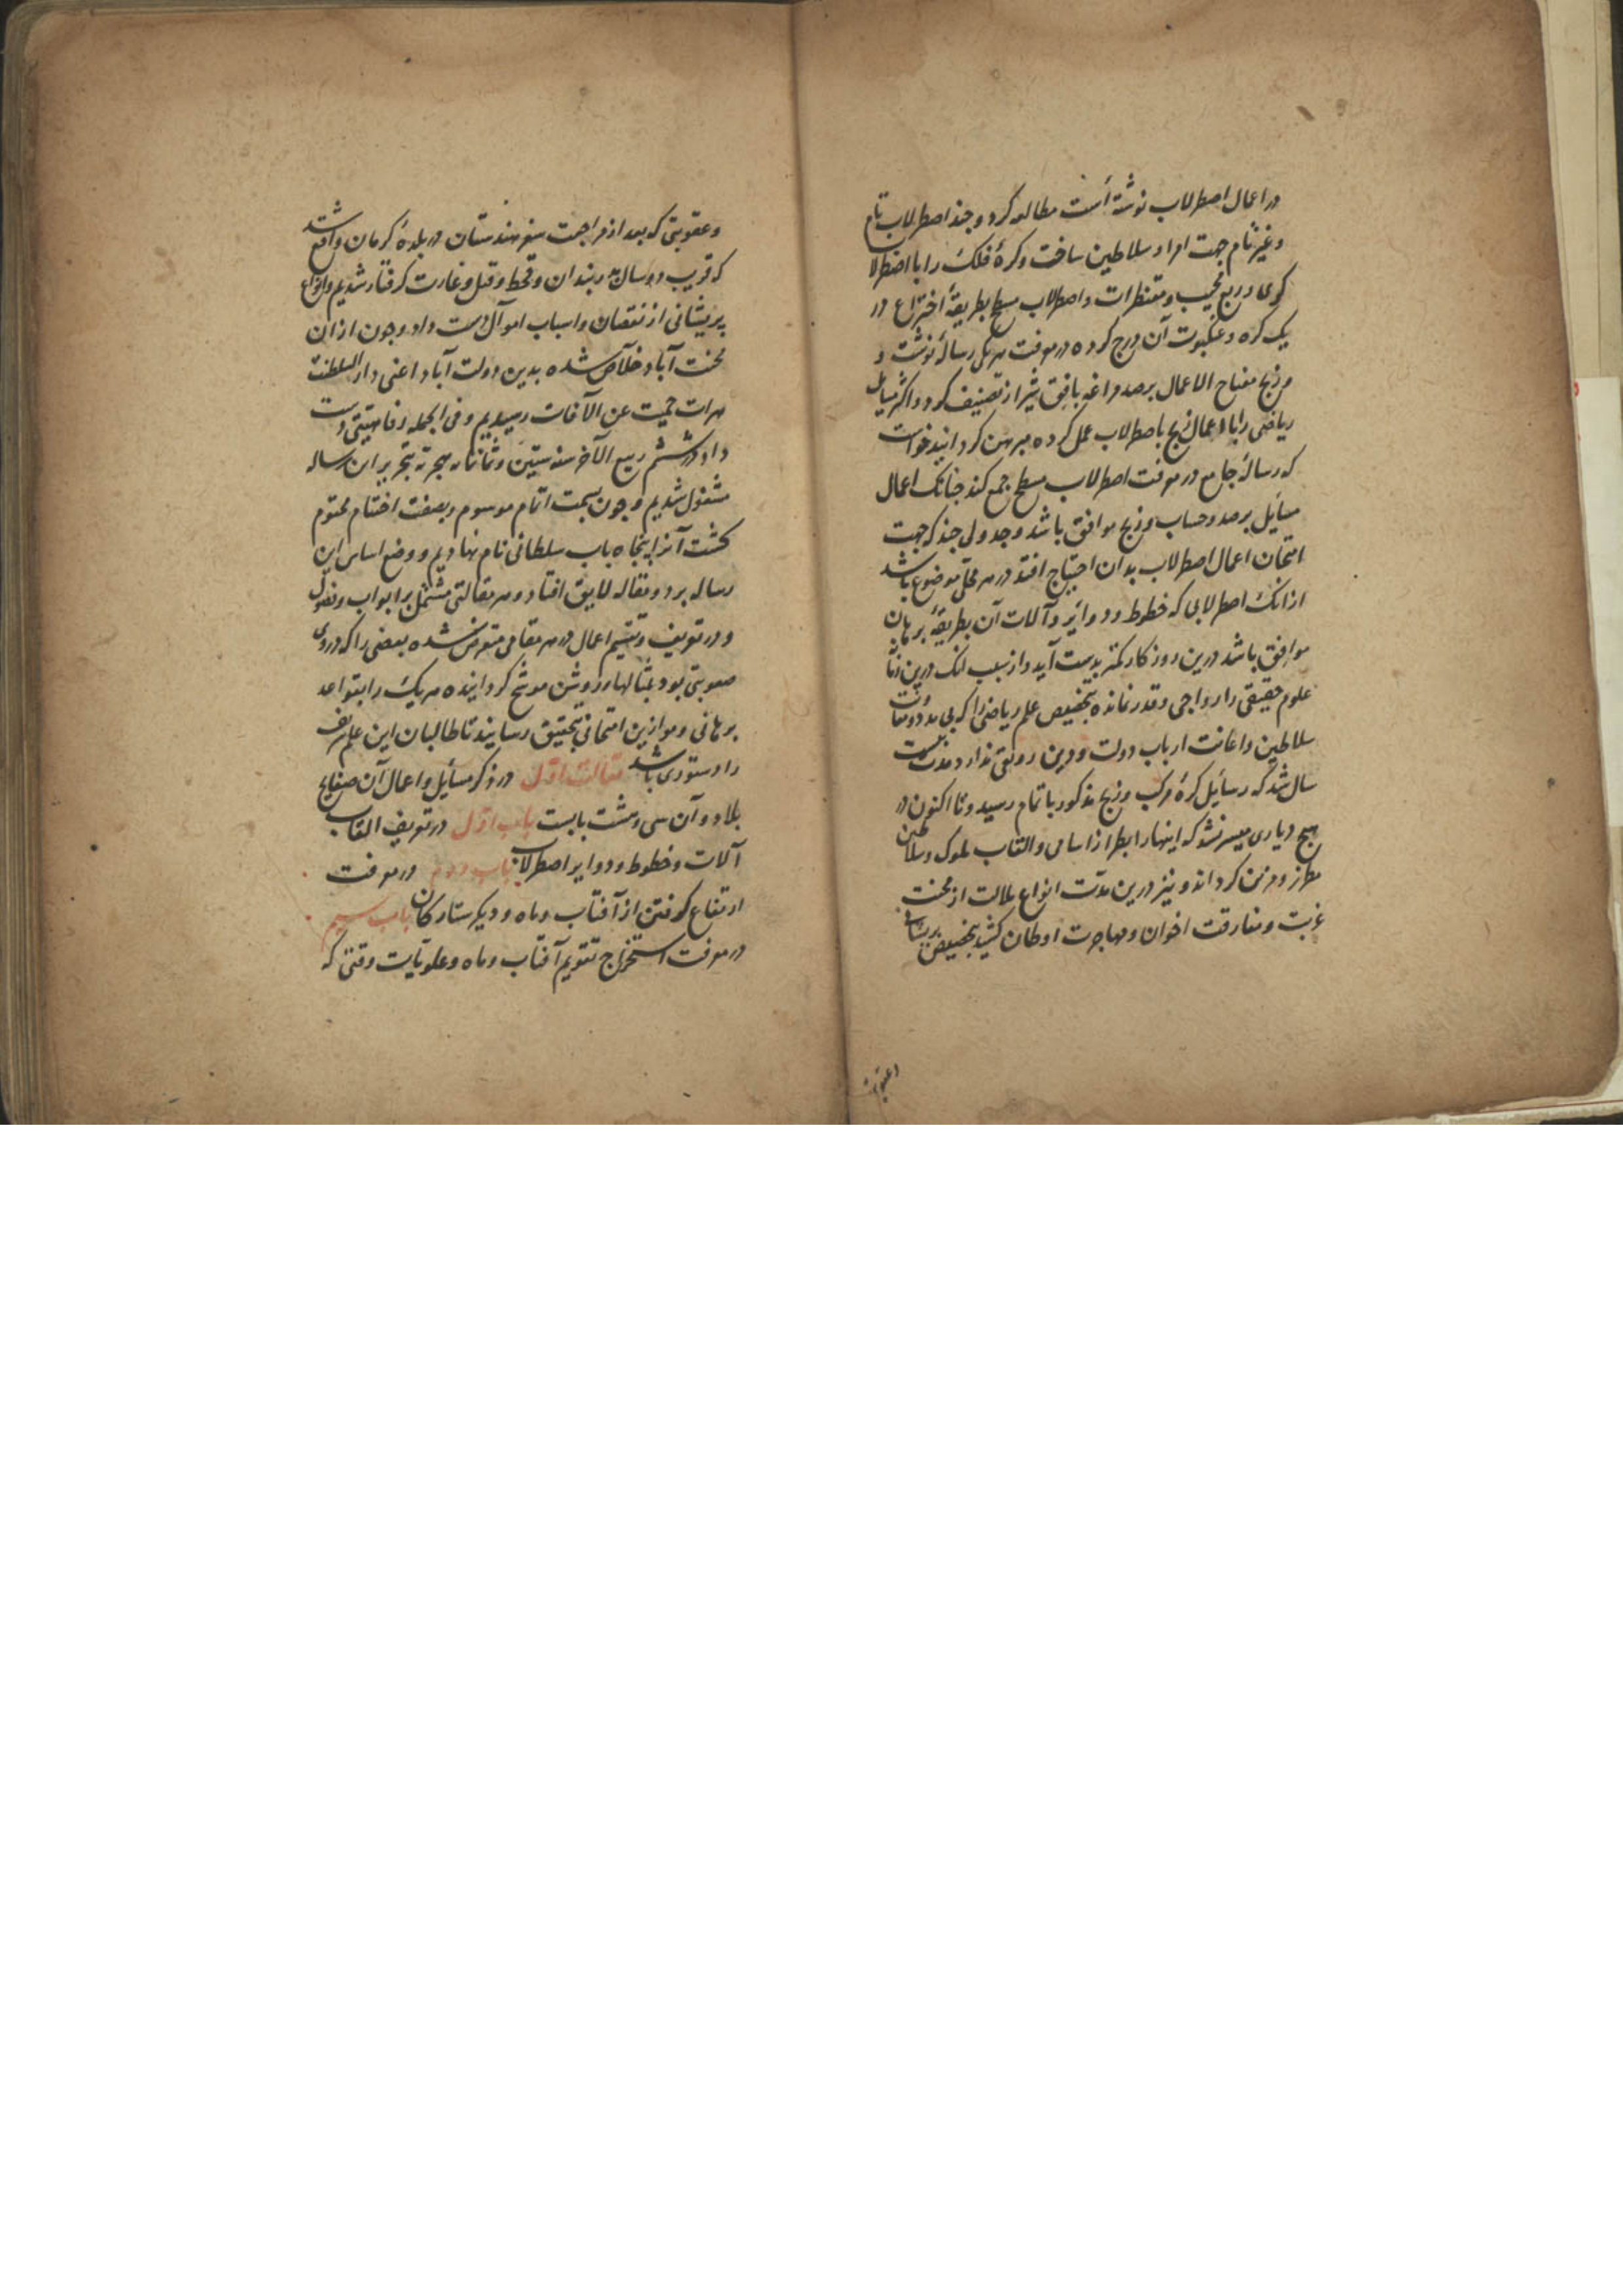 در اعمال اصطرلاب نوشته است مطالعه کرد و چند اصطرلاب تام
و غیر تام جهت امرا و سلاطین ساخت و کرهٔ فلک را با اصطرلا
کری و ربع مجیب و مقنطرات و اصطرلاب مسطح بطریقهٔ اختراع در
یک کره و عنکبوت آن درج کرده در معرفت هر یکی رسالهٔ نوشت و
و زیج مفتاح الاعمال برصد مراغه بافق شیراز تصنیف کرد و اکثر مسایل
ریاضی را با اعمال زیج باصطرلاب عمل کرده مبرهن کردانید خواست
که رسالهٔ جامع در معرفت اصطرلاب مسطح جمع کند چنانک اعمال
مسایل برصد و حساب و زیج موافق باشد و جدولی چند که جهت
امتحان اعمال اصطرلاب بدان احتیاج افتد در هر محلی موضوع باشد
از انک اصطرلابی که خطوط و دوایر و آلات آن بطریقهٔ برهان
موافق باشد درین روزکار کمتر بدست آید و از سبب انک درین زمان
علوم حقیقی را رواجی و قدر نمانده بتخصیص علم ریاضی را که بی مدد و معاونت
سلاطین و اعانت ارباب دولت و دین رونقی ندارد مدت بیست
سال شد که رسایل کرهٔ مرکب و زیج مذکور باتمام رسید و تا اکنون در
هیچ دیاری میسر نشد که اینها را بطراز اسامی و القاب ملوک و سلاطین
مطرز و مزین کرداند و نیز درین مدت انواع ملالت از محنت
غربت و مفارقت اخوان و مهاجرت اوطان کشید بتخصیص پریشانی
و عقوبتی که بعد از مراجعت سفر هندستان در بلدهٔ کرمان واقع شد
که قریب دو سال به دربندان و قحط و قتل و غارت کرفتار شدیم و انواع
پریشانی از نقصان و اسباب اموال دست داد و چون از ان
محنت آباد خلاص شده بدین دولت آباد اعنی دار السلطنت
هرات حمیت عن الآفات رسیدیم و فی الجمله رفاهیتی دست
داد در ششم ربیع الآخر سنه ستین و ثمانمایه هجریه بتحریر این رساله
مشغول شدیم و چون بسمت اتمام موسوم و بصفت اختتام مختوم
کشت آنرا پنجاه باب سلطانی نام نهادیم و وضع اساس این
رساله بر دو مقاله لایق افتاد و هر مقالتی مشتمل بر ابواب و فصول
و در تعریف و تقسیم اعمال در هر مقامی متعرض شده بعضی را که در وی
صعوبتی بود بمثالهاء روشن موشح کردانیده هر یک را بقواعد
برهانی و موازین امتحانی بتحقیق رسانید تا طالبان این علم شریف
را دستوری باشد مقالت اول در ذکر مسایل و اعمال آن صفایح
بلاد و آن سی و هشت بابست باب اول در تعریف القاب
آلات و خطوط و دوایر اصطرلاب باب دوم در معرفت
ارتفاع کرفتن از آفتاب و ماه و دیکر ستارکان باب سیم
در معرفت استخراج تقویم آفتاب و ماه و علویات وقتی که